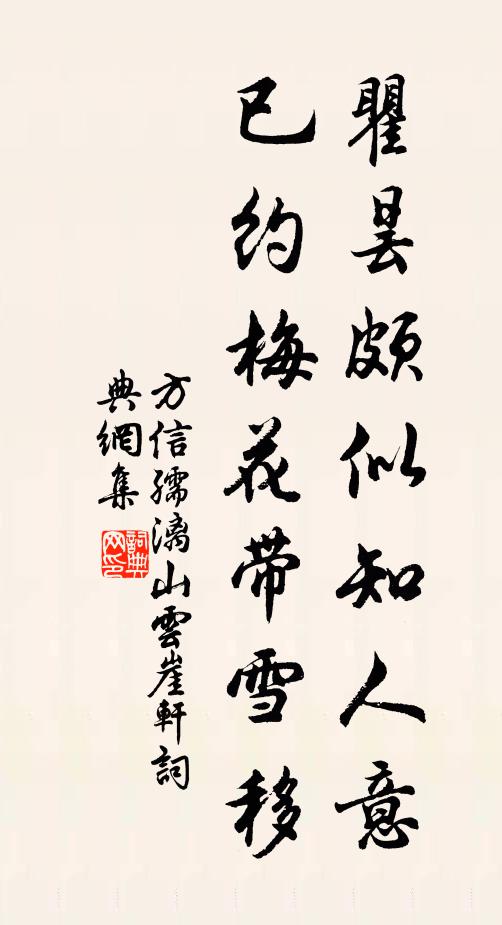 瞿昙頗似知人意
已約梅花帶雪移
方信孺漓山雲崖軒詞
典網集
詞典
网印